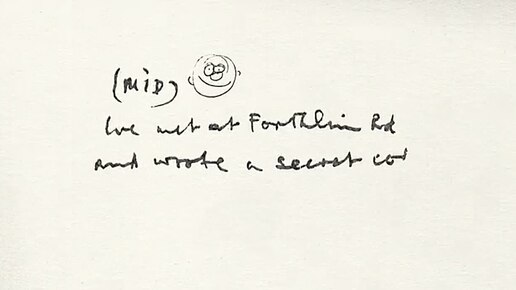 (MiD)
We met at Forthlin Rd
and wrote a secret cod